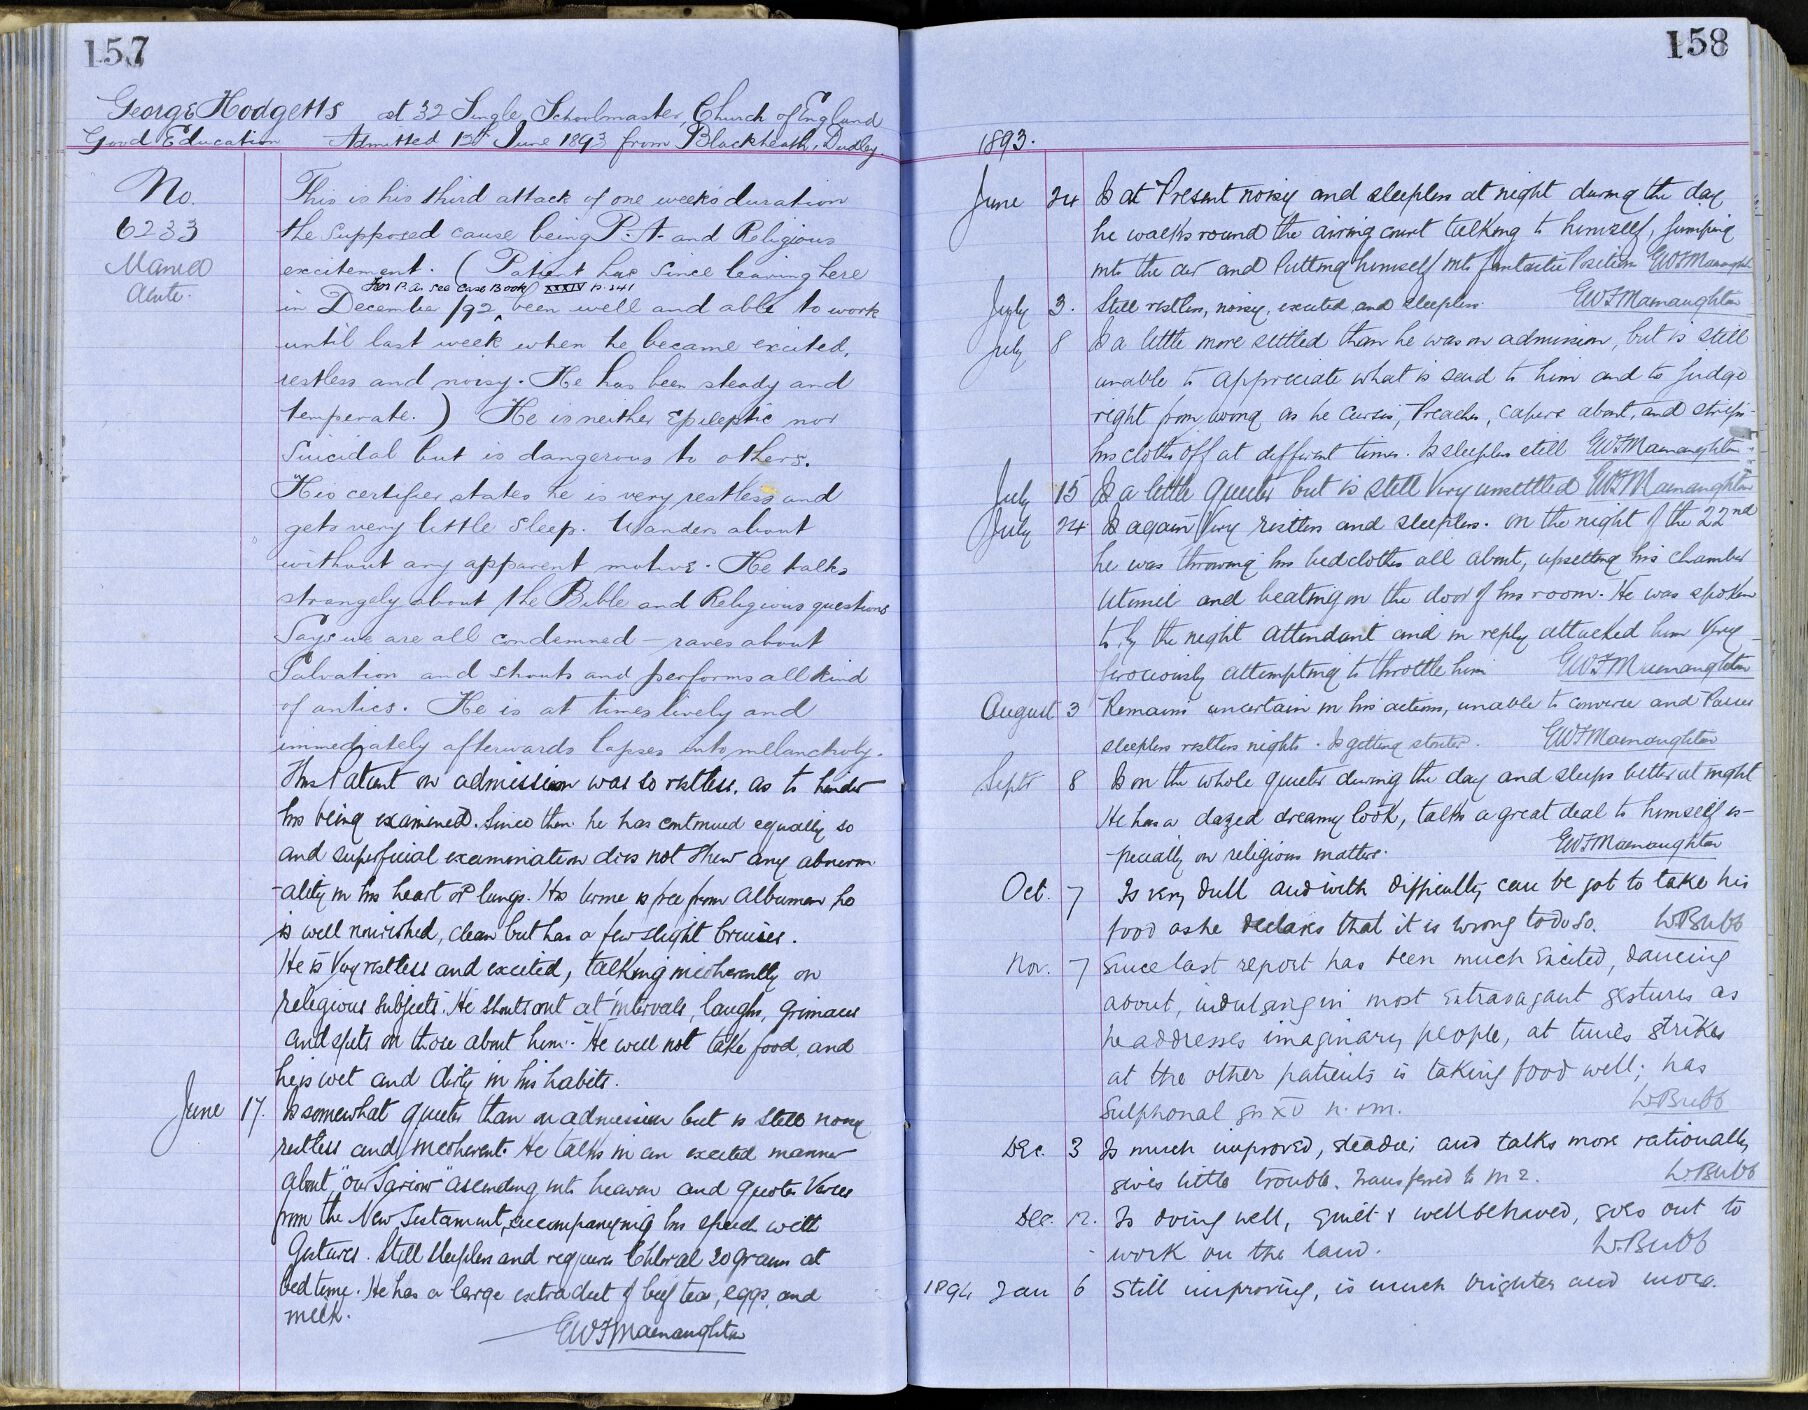 157
George Hodgetts æt 32 Single, Schoolmaster, Church of England
Good Education Admitted 12th June 1893 from Blackheath, Dudley
No.
6233
Mania
Acute.
This is his third attack of one week's duration
the supposed cause being P. A. and Religious
excitement. (Patient has since leaving here
For P.A. see Case Book XXXIV p. 341
in December /92 been well and able to work
until last week when he became excited,
restless and noisy. He has been steady and
temperate.) He is neither Epileptic nor
Suicidal but is dangerous to others.
His certifier states he is very restless and
gets very little sleep. Wanders about
without any apparent motive. He talks
strangely about the Bible and Religious questions
Says we are all condemned – raves about
Salvation and shouts and performs all kind
of antics. He is at times lively and
immediately afterwards lapses into melancholy.
This Patient on admission was so restless, as to hinder
his being examined. Since then he has continued equally so
and superficial examination does not shew any abnorm
-ality in his heart or lungs. His urine is free from Albumen, he
is well nourished, clean but has a few slight bruises.
He is Very restless and excited, talking incoherently on
religious subjects. He shouts out at intervals, laughs, grimaces
and spits on those about him. He will not take food, and
he is wet and dirty in his habits.
June 17. Is somewhat quieter than on admission but is still noisy
restless and incoherent. He talks in an excited manner
about "our Saviour" ascending into heaven and quotes Verses
from the New Testament, accompanying his speech with
Gestures. Still sleepless and requires Chloral 20 grains at
bed time. He has a large extra diet of beef tea, eggs, and
milk.
EWFMacnaughton
158
1893.
June 24 Is at Present noisy and sleepless at night during the day
he walks round the airing court talking to himself, jumping
into the air and Putting himself into fantastic Position EWFMacnaughton
July 3. Still restless, noisy, excited and sleepless. EWFMacnaughton
July 8 Is a little more settled than he was on admission, but is still
unable to appreciate what is said to him and to judge
right from wrong as he Curses, Preaches, capers about, and strips
his clothes off at different times. Is sleepless still EWFMacnaughton
July 15 Is a little quieter but is still Very unsettled EWFMacnaughton
July 24 Is again Very restless and sleepless. On the night of the 22nd
he was throwing his bedclothes all about, upsetting his chamber
Utensil and beating on the door of his room. He was spoken
to by the night Attendant and in reply attacked him Very
ferociously attempting to throttle him EWFMacnaughton
August 3 Remains uncertain in his actions, unable to converse and Passes
sleepless restless nights. Is getting stouter. EWFMacnaughton
Septr 8 Is on the whole quieter during the day and sleeps better at night
He has a dazed dreamy look, talks a great deal to himself es-
-pecially on religious matters. EWFMacnaughton
Oct. 7 Is very dull and with difficulty can be got to take his
food as he declares that it is wrong to do so. W.Bubb
Nov. 7 Since last report has been much Excited, dancing
about, indulging in most extravagant gestures as
he addresses imaginary people, at times strikes
at the other patients is taking food well; has
Sulphonal grs XV n. & m. W.Bubb
Dec. 3 Is much improved, steadier and talks more rationally
gives little trouble. Transferred to M 2. W.Bubb
Dec. 12. Is doing well, quiet & well behaved, goes out to
work on the land. W.Bubb
1894 Jan 6 Still improving, is much brighter and more.